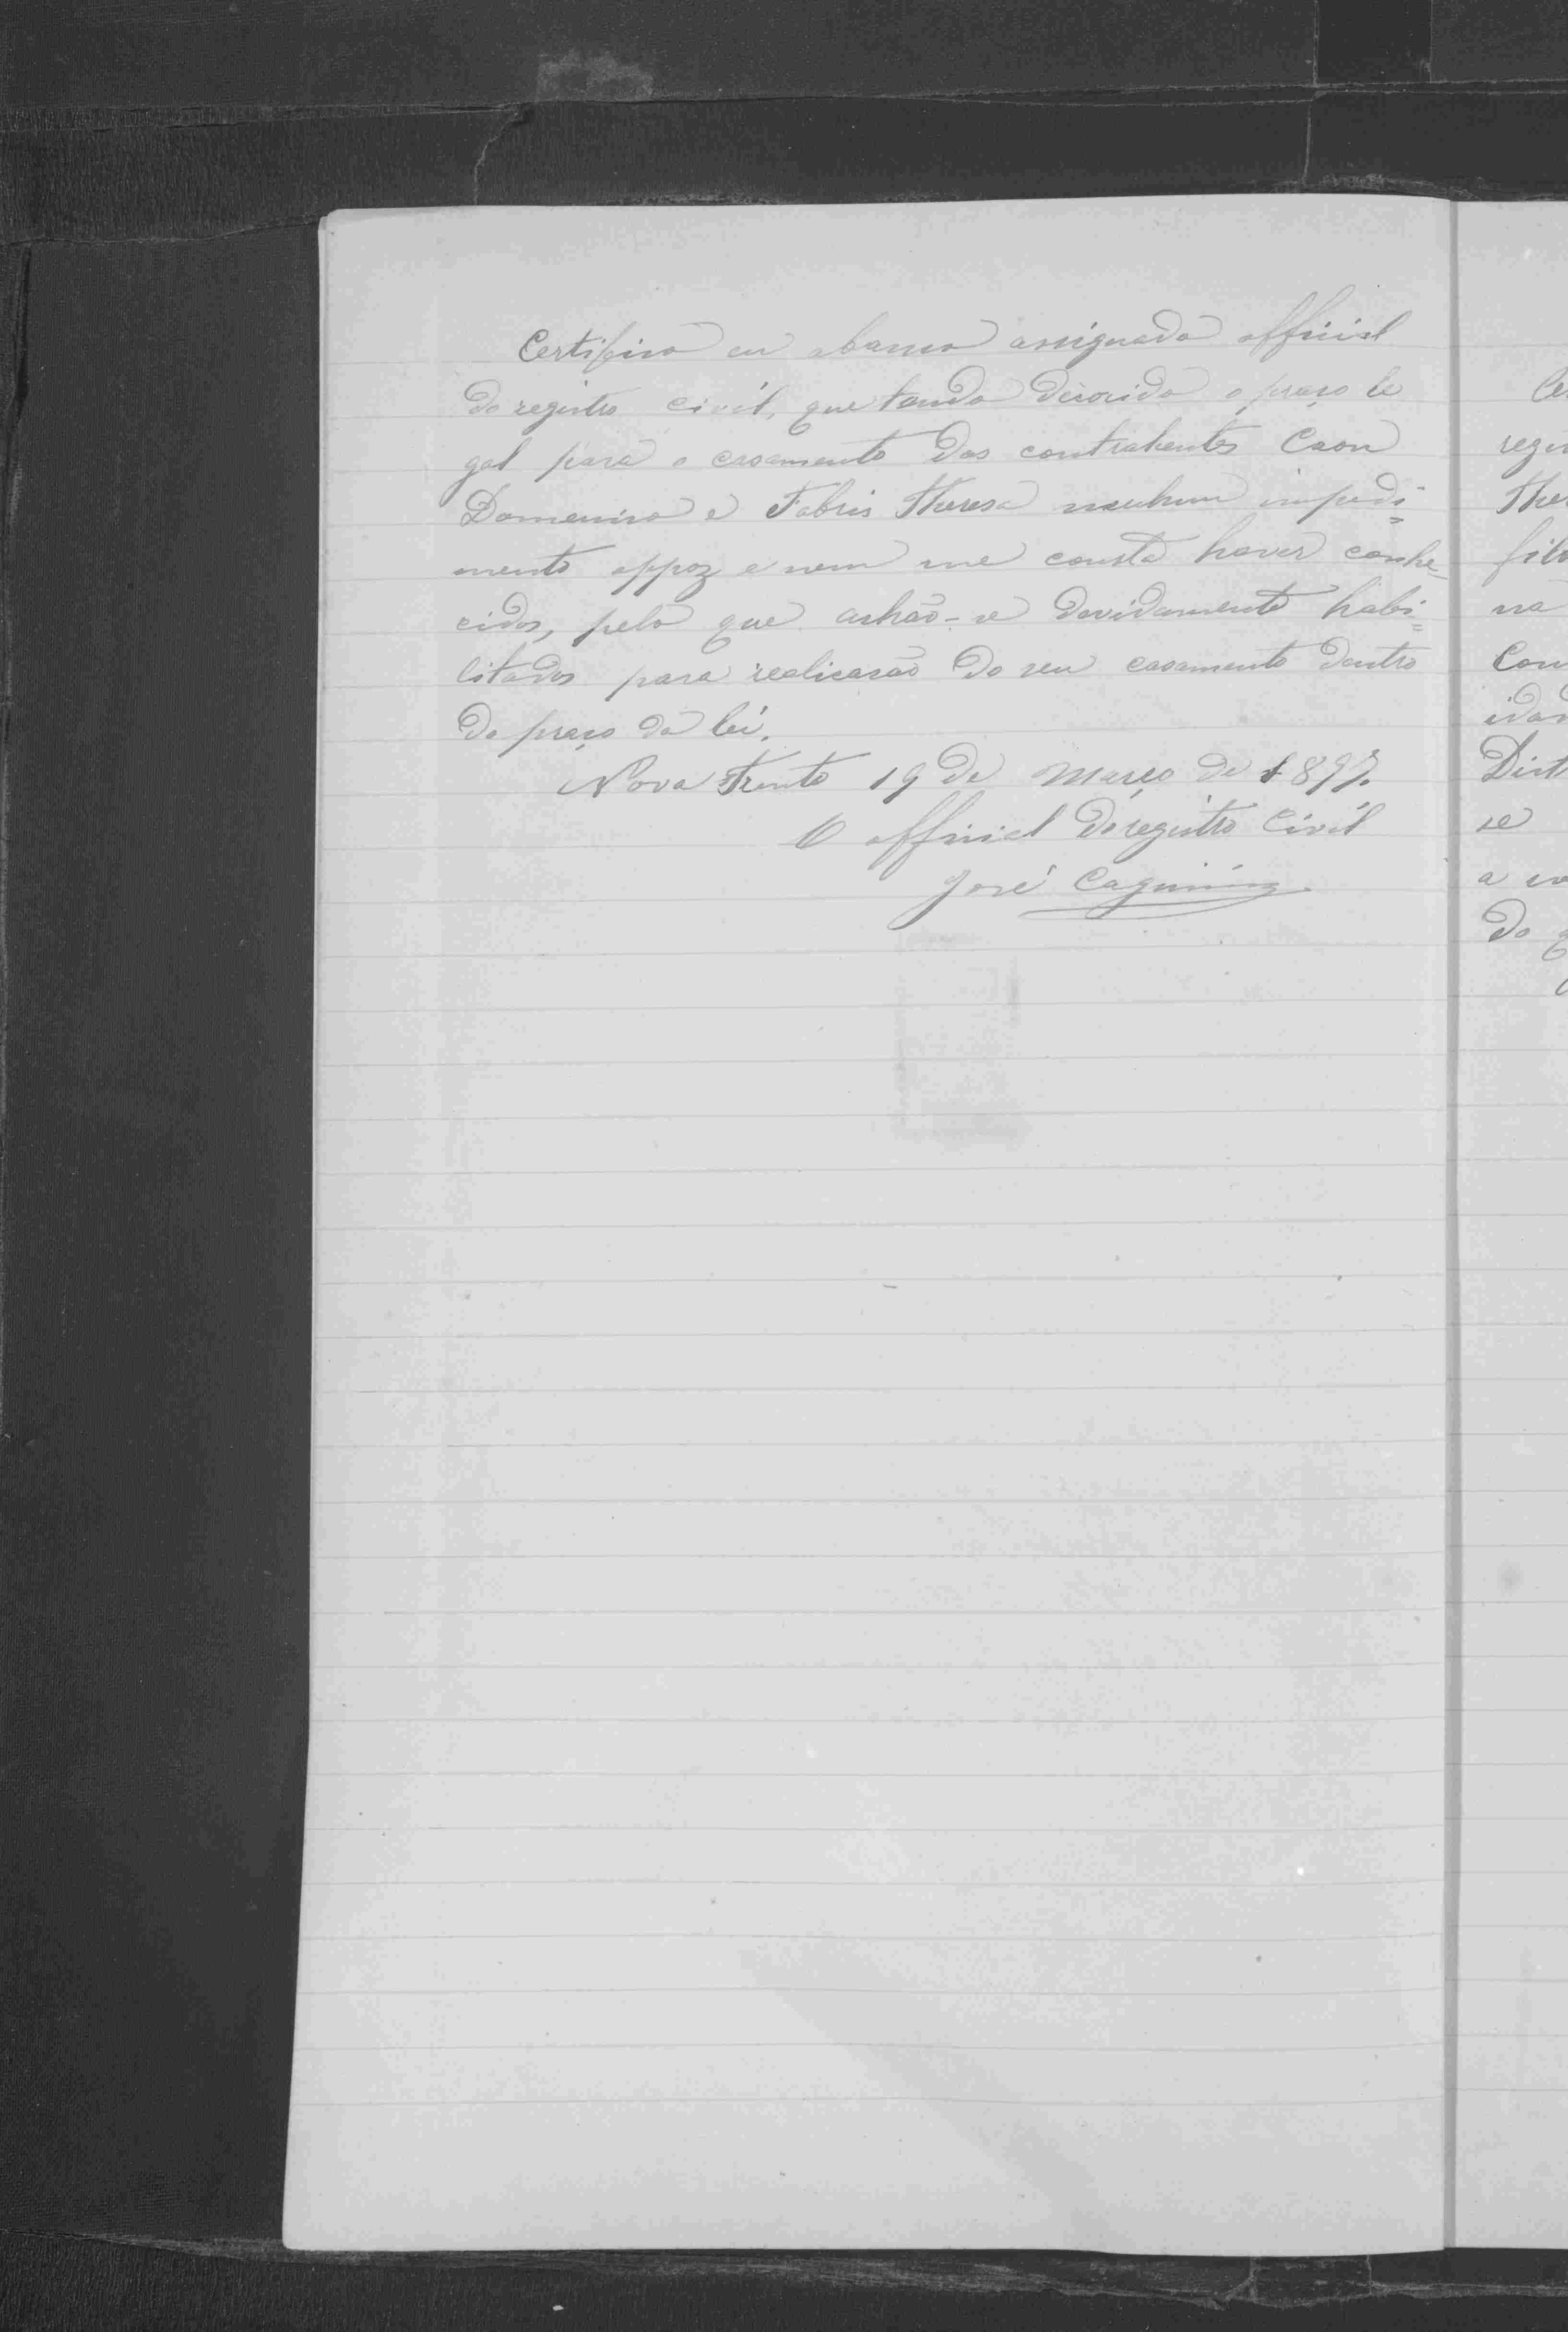 Certifico eu abaixo assignado official
do registro civil, que tendo decorido o praço le
gal para o casamento dos contrahentes Caon
Domenico e Fabris Theresa nenhum impedi=
mento oppoz e nem me consta haver conhe=
cidos, pelo que achão-se devidamente habi=
litados para realicasão do seu casamento dentro
do praço da lei.
Nova Trento 19 de Março de 1897.
O official do registro Civil
José
Ce
regis
The
filh
na
Con
idad
Dist
se
a
do q